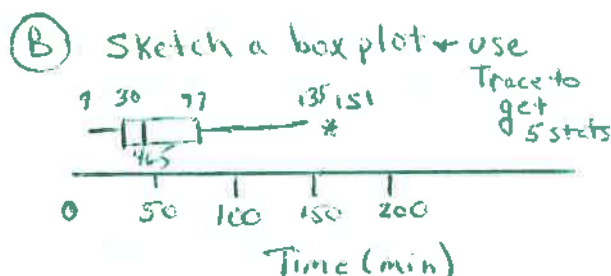 B Sketch a box plot + use
Trace to
get
5 stats
30 77 135 151
0 50 100 150 200
Time (min)